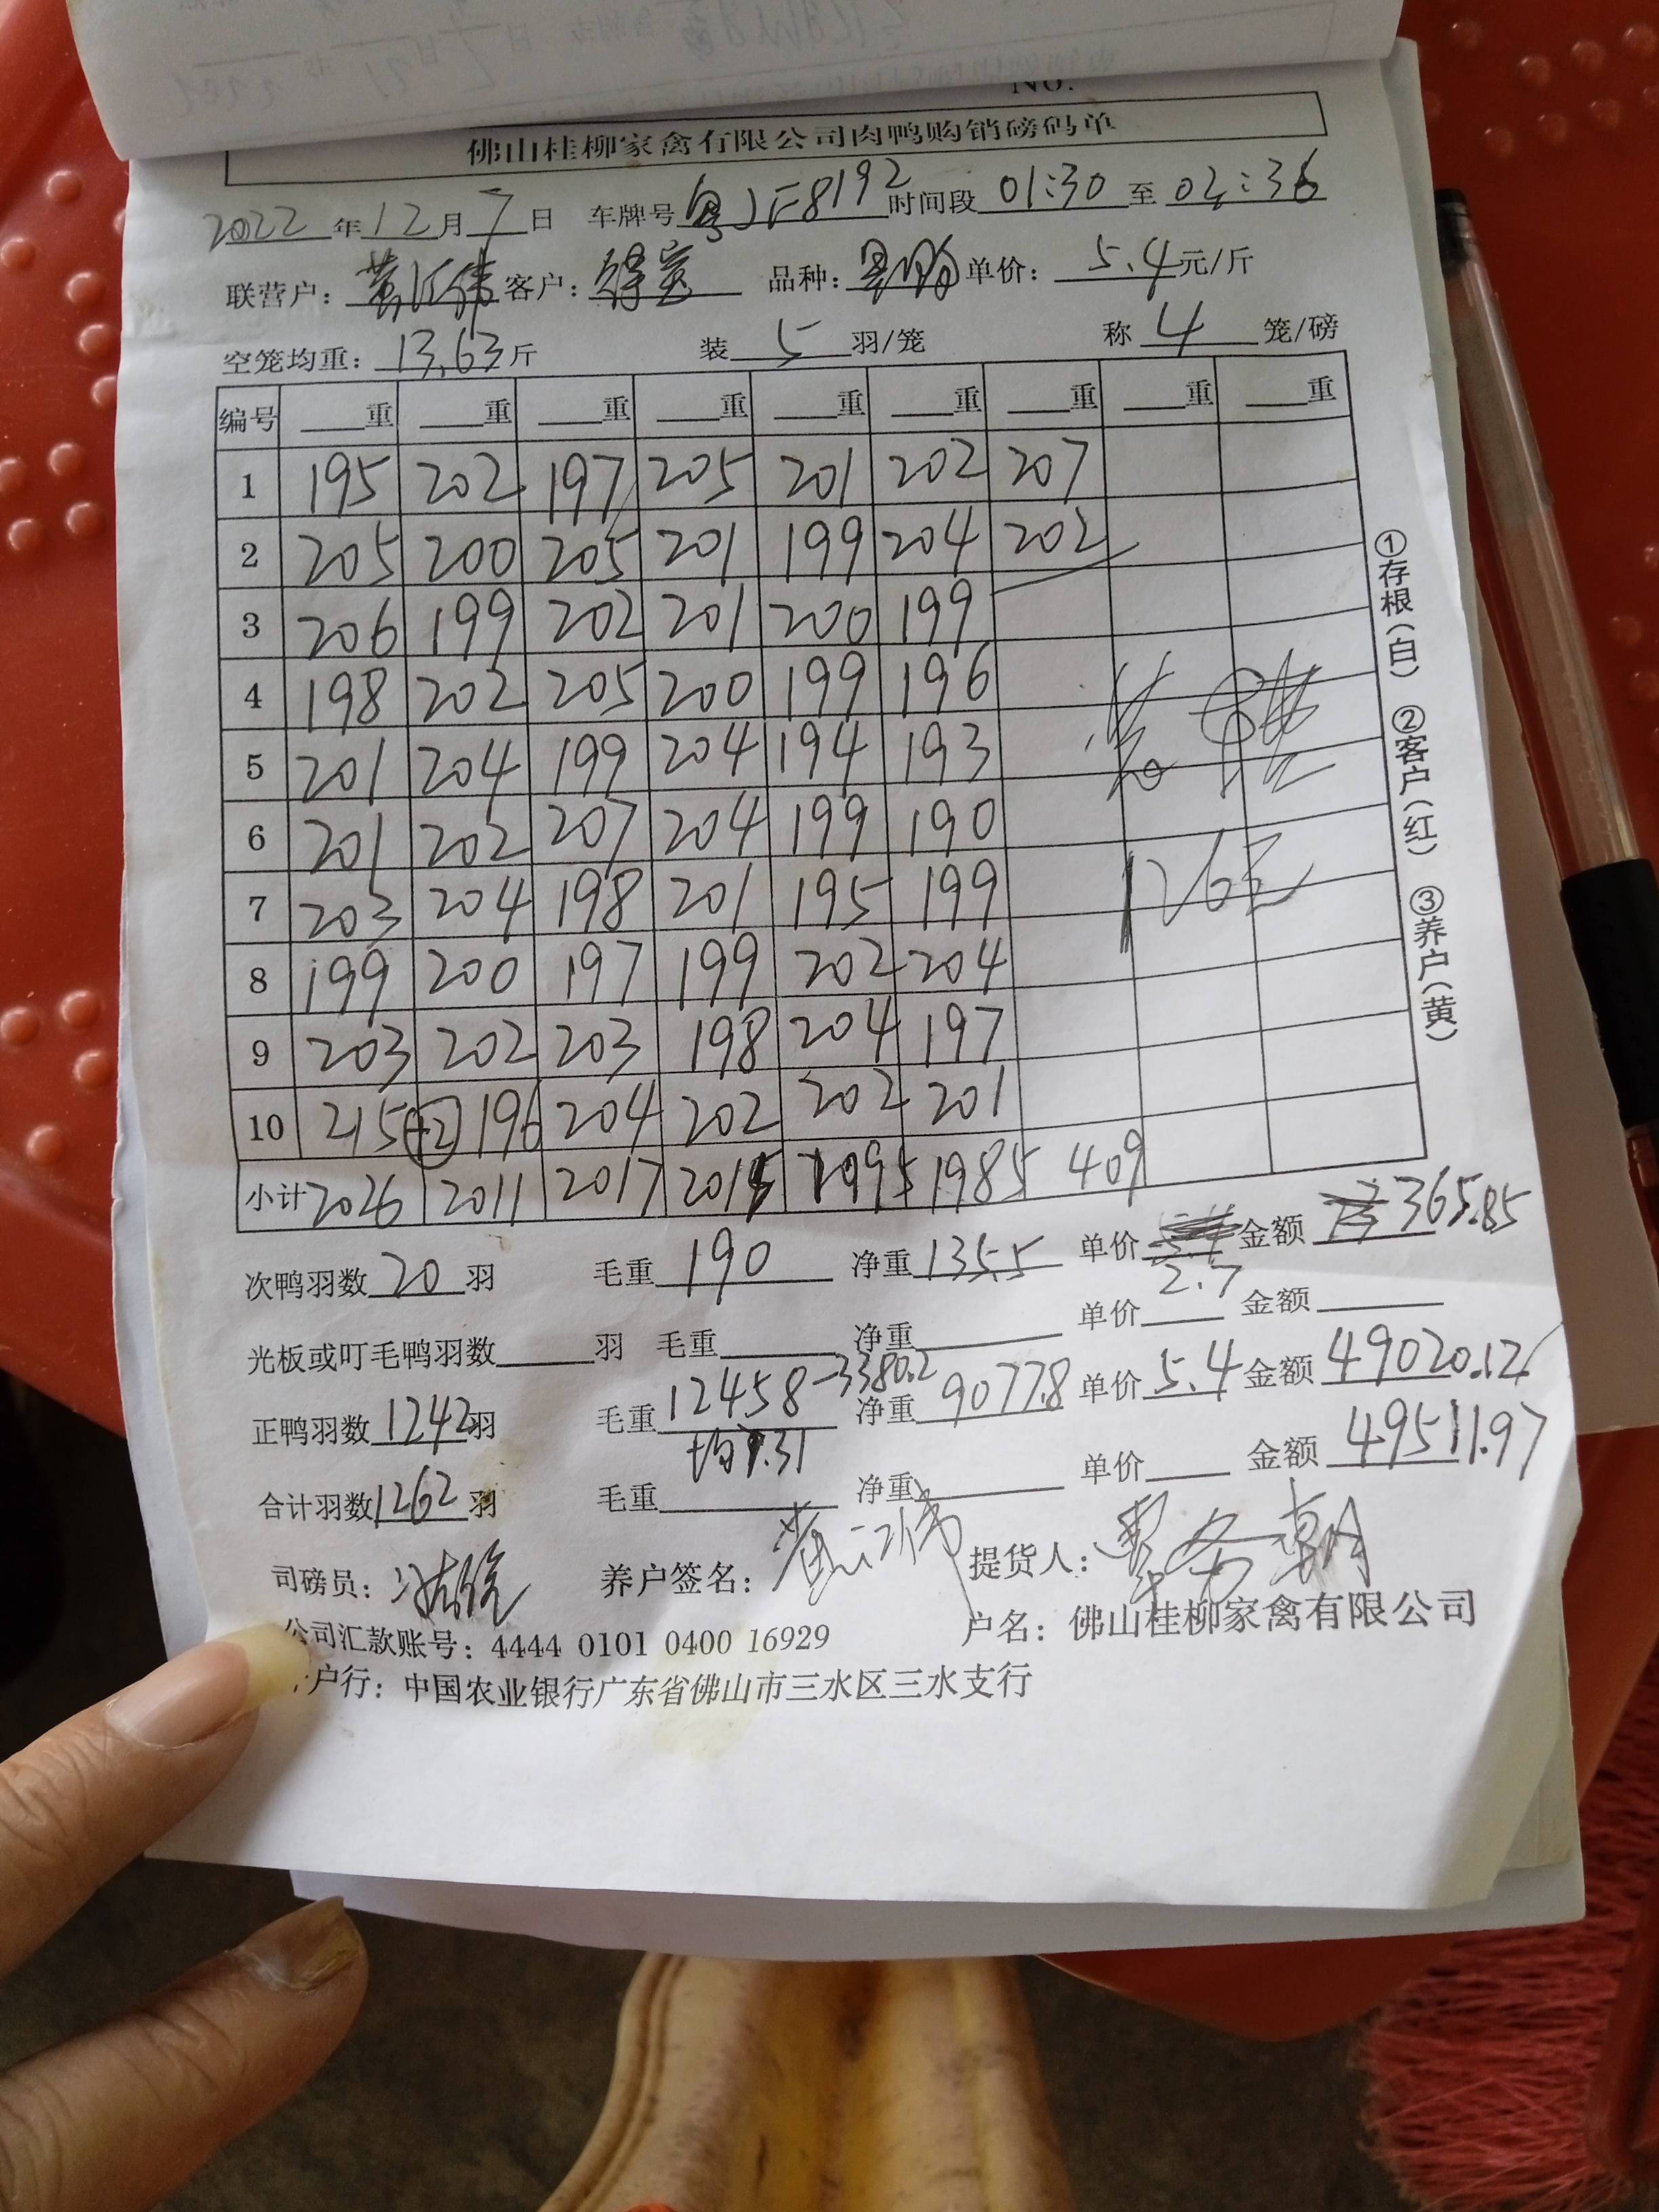 No.
佛山桂柳家禽有限公司肉鸭购销磅码单
2022年12月7日 车牌号粤JF8192时间段01:30至02:36
联营户:黄江伟客户: 品种: 单价:5.4元/斤
空笼均重:13.63斤 装5羽/笼 称4笼/磅
编号 重 重 重 重 重 重 重 重 重
1 195 202 197 205 201 202 207
2 205 200 205 201 199 204 202
3 206 199 202 201 200 199
4 198 202 205 200 199 196
5 201 204 199 204 194 193
6 201 202 207 204 199 190
7 203 204 198 201 195 199
8 199 200 197 199 202 204
9 203 202 203 198 204 197
10 215 +2 196 204 202 202 201
小计 2026 2011 2017 2015 1995 1985 409
次鸭羽数20羽 毛重190 净重135.5 单价2.7 金额365.85
光板或叮毛鸭羽数 羽 毛重 净重 单价 金额
正鸭羽数1242羽 毛重12458-3380.2 净重9077.8 单价5.4 金额49020.12
均7.31
合计羽数1262羽 毛重 净重 单价 金额49511.97
司磅员: 养户签名:黄江伟 提货人:
公司汇款账号:4444 0101 0400 16929 户名:佛山桂柳家禽有限公司
户行:中国农业银行广东省佛山市三水区三水支行
①存根(白) ②客户(红) ③养户(黄)